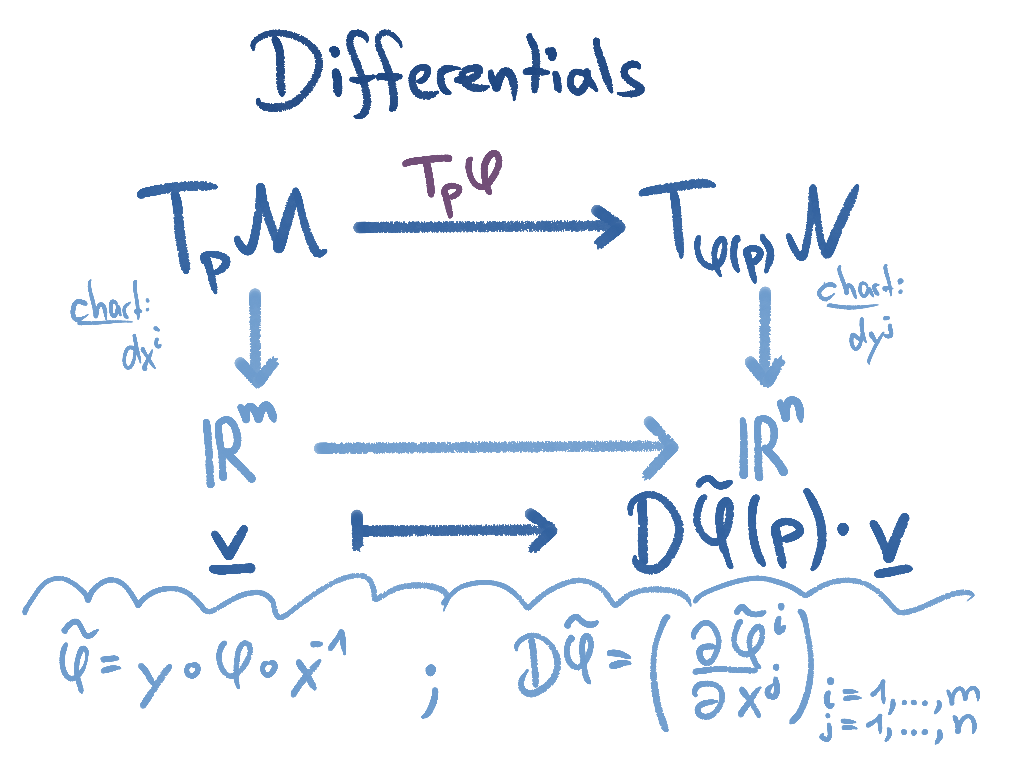 Differentials
TₚM TₚΦ T_φ(p) N
chart: chart:
dxⁱ dyʲ
ℝᵐ ℝⁿ
v ↦ Dφ̃(p)·v
φ̃ = y∘φ∘x⁻¹ ; Dφ̃ = (∂φ̃ⁱ/∂xʲ) i=1,...,m
j=1,...,n